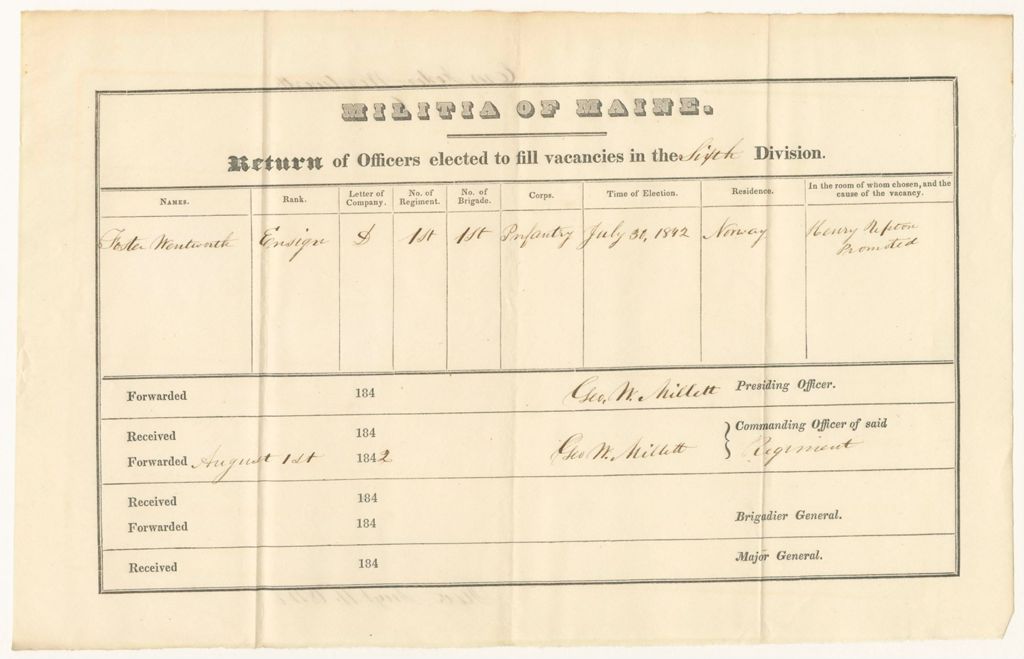 MILITIA OF MAINE.
Return of Officers elected to fill vacancies in the Sixth Division.
Names. Rank. Letter of Company. No. of Regiment. No. of Brigade. Corps. Time of Election. Residence. In the room of whom chosen, and the cause of the vacancy.
Foster Wentworth Ensign D 1st 1st Infantry July 30, 1842 Norway Henry
Promoted
Forwarded 184 Geo. W. Millett Presiding Officer.
Received 184 Commanding Officer of said
Forwarded August 1st 1842 Geo W. Millett Regiment
Received 184
Forwarded 184 Brigadier General.
Received 184 Major General.